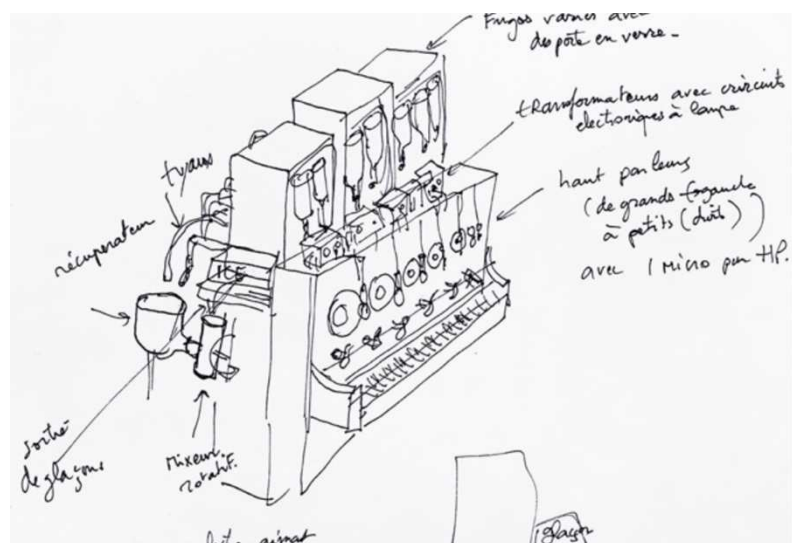 Frigos variés avec
des porte en verre -
transformateurs avec criircuits
electroniques à lampe
haut parleurs
(de grands gauche
à petits (droits))
avec 1 Micro par HP.
tyaux
récuperateur
ICE
sortie
de glaçons
Mixeur
rotatif.
glaçon